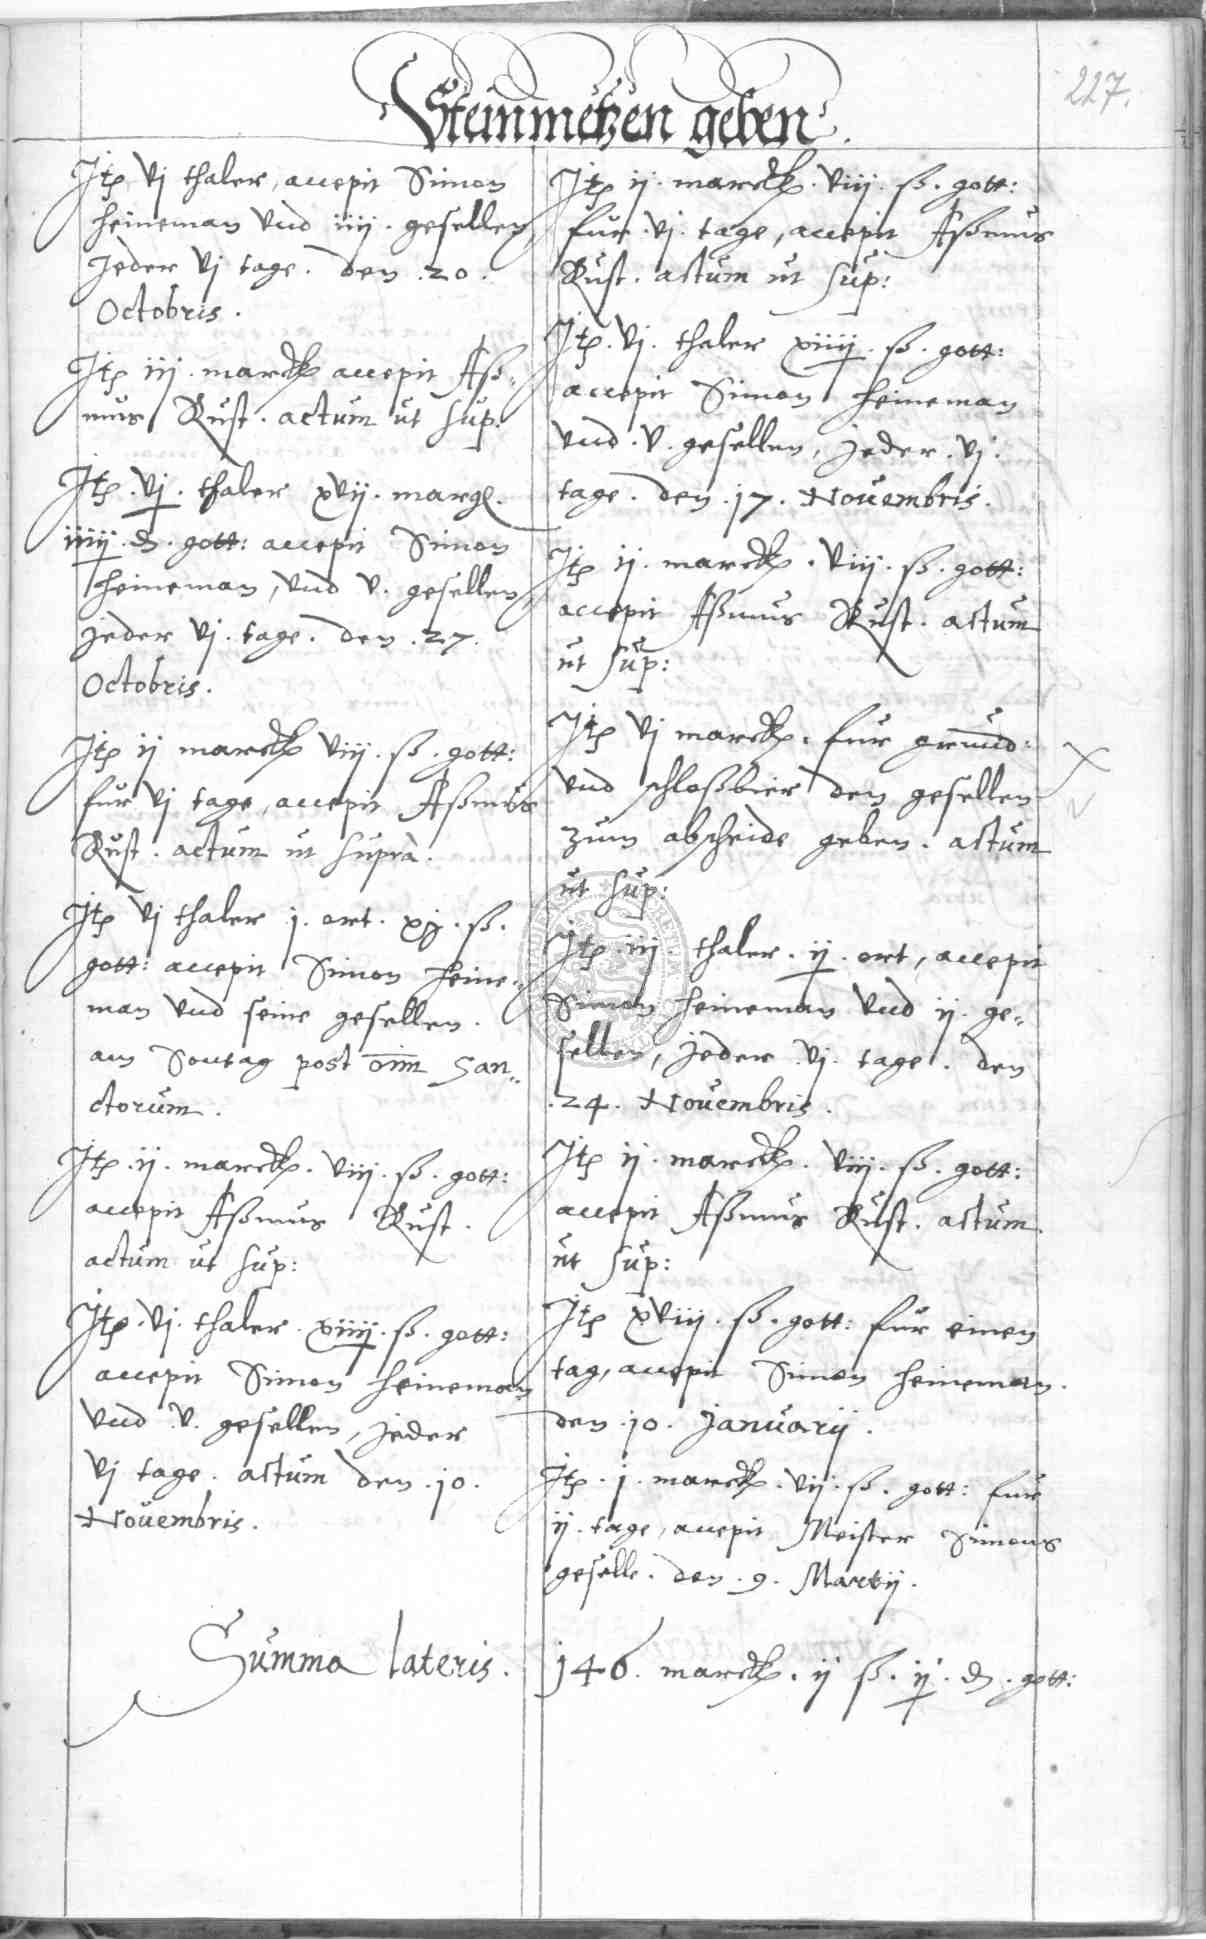 227.
Steinmetzen geben.
Itē vj thaler, accepit Simon
Heineman vnd iiij. gesellen,
Jeder vj tage. den .20.
Octobris.
Itē iij. marck accepit Aß„
mus Rust. actum ut sup:
Itē. vj. thaler xvij. margl.
iiij. d. gott: accepit Simon
Heineman, vnd v. gesellen,
jeder vj. tage. den .27.
Octobris.
Itē ij marck viij. ß. gott:
fur vj tage, accepit Aßmus
Rust. actum ut supra.
Itē vj thaler j. ort. xj. ß.
gott: accepit Simon Heine„
man vnd seine gesellen.
am Sontag post oīm San„
ctorum.
Itē. ij. marck. viij. ß. gott:
accepit Aßmus Rust.
actum ut sup:
Itē. vj. thaler. xiiij. ß. gott:
accepit Simon Heineman
vnd v. gesellen, jeder
vj tage. actum den .10.
Novembris.
Itē ij. marck. viij. ß. gott:
fur .vj. tage, accepit Aßmus
Rust. actum ut sup:
Itē. vj. thaler xiiij. ß. gott:
accepit Simon Heineman
vnd .v. gesellen, jeder .vj.
tage. den .17. Novembris.
Itē ij. marck. viij. ß. gott:
accepit Aßmus Rust. actum
ut sup:
Itē vj marck. fur grund:
vnd schloßbier den gesellen
zum abscheide geben. actum
ut sup:
Itē. iij. thaler. ij. ort, accepit
Simon Heineman vnd ij. ge„
sellen, jeder .vj. tage. den
.24. Novembris.
Itē ij. marck. viij. ß. gott:
accepit Aßmus Rust. actum.
ut sup:
Itē xviij. ß. gott: fur einen
tag, accepit Simon Heineman.
den .10. Januarij.
Itē. j. marck. vij. ß. gott: fur
ij. tage, accepit Meister Simons
geselle. den .9. Martij.
Summa lateris. 146. marck. ij ß. ij. d. gott: